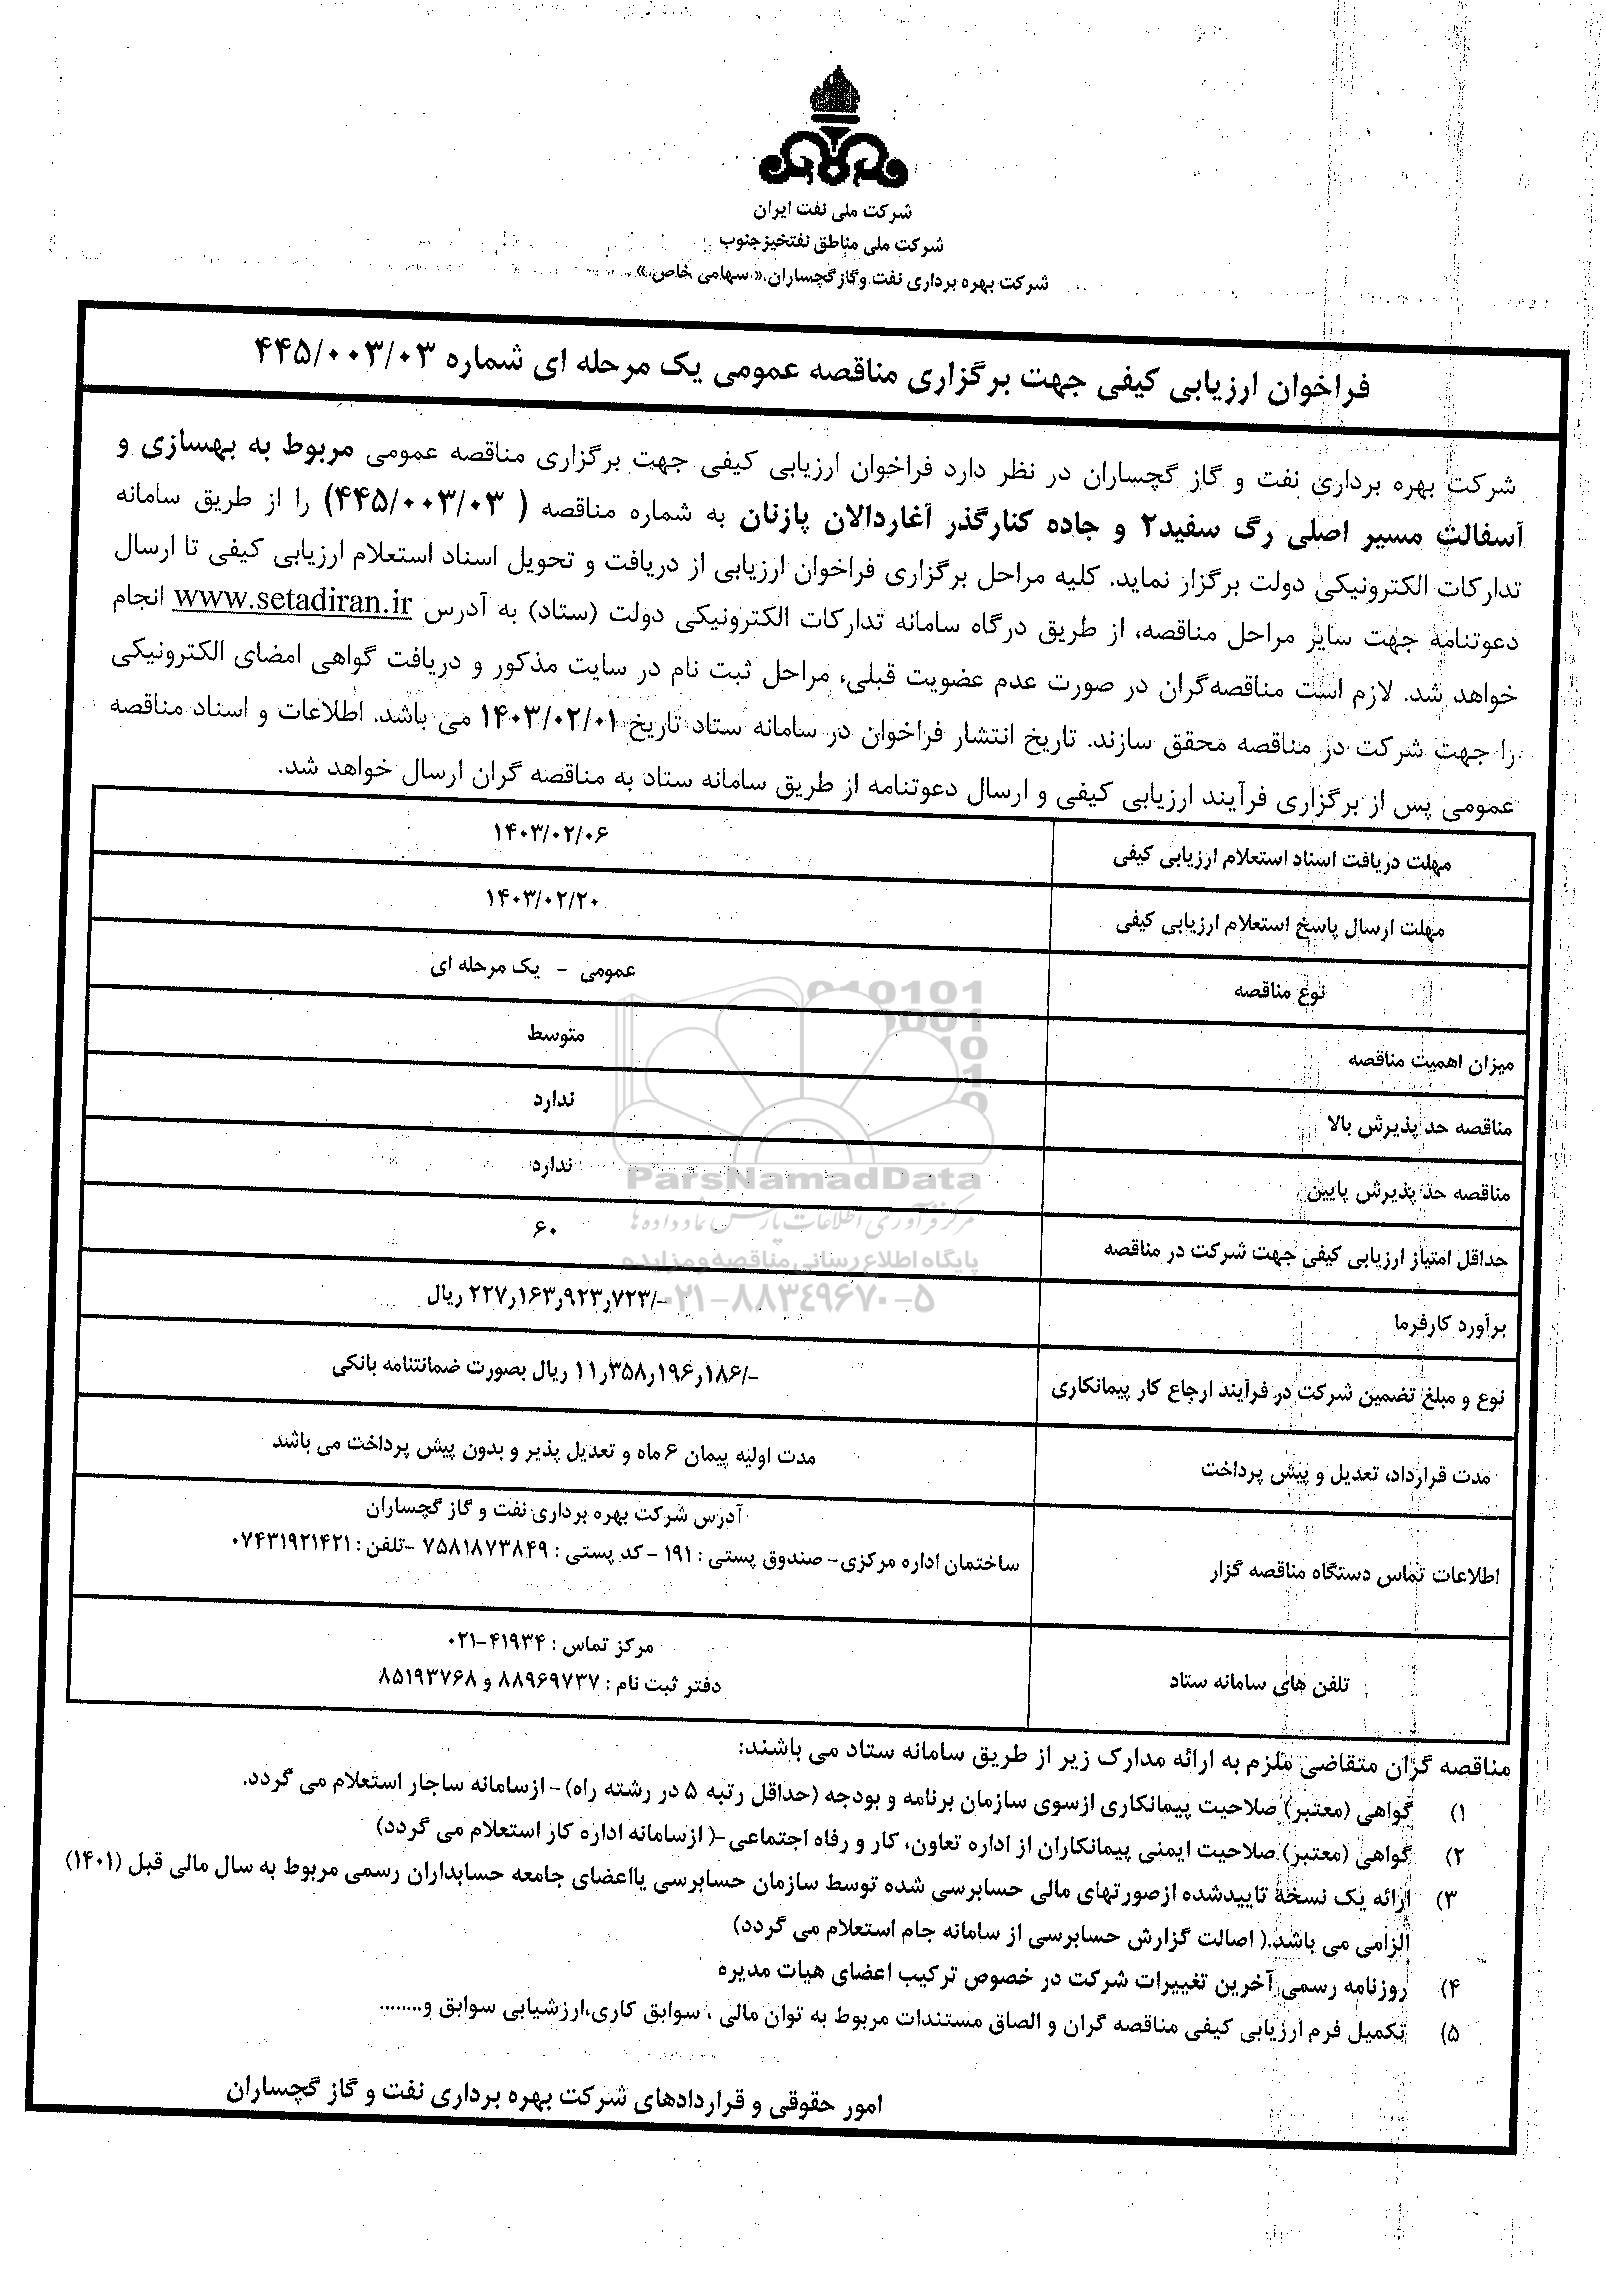 شرکت ملی نفت ایران
شرکت ملی مناطق نفتخیز جنوب
شرکت بهره برداری نفت و گاز گچساران «سهامی خاص»
فراخوان ارزیابی کیفی جهت برگزاری مناقصه عمومی یک مرحله ای شماره ۴۴۵/۰۰۳/۰۳
شرکت بهره برداری نفت و گاز گچساران در نظر دارد فراخوان ارزیابی کیفی جهت برگزاری مناقصه عمومی مربوط به بهسازی و
آسفالت مسیر اصلی رگ سفید۲ و جاده کنارگذر آغاردالان پازنان به شماره مناقصه ( ۴۴۵/۰۰۳/۰۳) را از طریق سامانه
تدارکات الکترونیکی دولت برگزار نماید. کلیه مراحل برگزاری فراخوان ارزیابی از دریافت و تحویل اسناد استعلام ارزیابی کیفی تا ارسال
دعوتنامه جهت سایر مراحل مناقصه، از طریق درگاه سامانه تدارکات الکترونیکی دولت (ستاد) به آدرس www.setadiran.ir انجام
خواهد شد. لازم است مناقصه‌گران در صورت عدم عضویت قبلی، مراحل ثبت نام در سایت مذکور و دریافت گواهی امضای الکترونیکی
را جهت شرکت در مناقصه محقق سازند. تاریخ انتشار فراخوان در سامانه ستاد تاریخ ۱۴۰۳/۰۲/۰۱ می باشد. اطلاعات و اسناد مناقصه
عمومی پس از برگزاری فرآیند ارزیابی کیفی و ارسال دعوتنامه از طریق سامانه ستاد به مناقصه گران ارسال خواهد شد.
مهلت دریافت اسناد استعلام ارزیابی کیفی ۱۴۰۳/۰۲/۰۶
مهلت ارسال پاسخ استعلام ارزیابی کیفی ۱۴۰۳/۰۲/۲۰
نوع مناقصه عمومی - یک مرحله ای
میزان اهمیت مناقصه متوسط
مناقصه حد پذیرش بالا ندارد
مناقصه حد پذیرش پایین ندارد
حداقل امتیاز ارزیابی کیفی جهت شرکت در مناقصه ۶۰
برآورد کارفرما ۲۲۷٫۱۶۳٫۹۲۳٫۷۲۳/- ریال
نوع و مبلغ تضمین شرکت در فرآیند ارجاع کار پیمانکاری ۱۱٫۳۵۸٫۱۹۶٫۱۸۶/- ریال بصورت ضمانتنامه بانکی
مدت قرارداد، تعدیل و پیش پرداخت مدت اولیه پیمان ۶ ماه و تعدیل پذیر و بدون پیش پرداخت می باشد
آدرس شرکت بهره برداری نفت و گاز گچساران
اطلاعات تماس دستگاه مناقصه گزار ساختمان اداره مرکزی- صندوق پستی : ۱۹۱ - کد پستی : ۷۵۸۱۸۷۳۸۴۹ -تلفن : ۰۷۴۳۱۹۲۱۴۲۱
مرکز تماس : ۴۱۹۳۴-۰۲۱
تلفن های سامانه ستاد دفتر ثبت نام : ۸۸۹۶۹۷۳۷ و ۸۵۱۹۳۷۶۸
010101
ParsNamadData
مرکز فرآوری اطلاعات پارس نماد داده ها
پایگاه اطلاع رسانی مناقصه و مزایده
۰۲۱-۸۸۳۴۹۶۷۰-۵
مناقصه گران متقاضی ملزم به ارائه مدارک زیر از طریق سامانه ستاد می باشند:
۱) گواهی (معتبر) صلاحیت پیمانکاری ازسوی سازمان برنامه و بودجه (حداقل رتبه ۵ در رشته راه) - ازسامانه ساجار استعلام می گردد.
۲) گواهی (معتبر) صلاحیت ایمنی پیمانکاران از اداره تعاون، کار و رفاه اجتماعی -( ازسامانه اداره کار استعلام می گردد)
۳) ارائه یک نسخة تاییدشده ازصورتهای مالی حسابرسی شده توسط سازمان حسابرسی یااعضای جامعه حسابداران رسمی مربوط به سال مالی قبل (۱۴۰۱)
الزامی می باشد.( اصالت گزارش حسابرسی از سامانه جام استعلام می گردد)
۴) روزنامه رسمی آخرین تغییرات شرکت در خصوص ترکیب اعضای هیات مدیره
۵) تکمیل فرم ارزیابی کیفی مناقصه گران و الصاق مستندات مربوط به توان مالی ، سوابق کاری،ارزشیابی سوابق و........
امور حقوقی و قراردادهای شرکت بهره برداری نفت و گاز گچساران